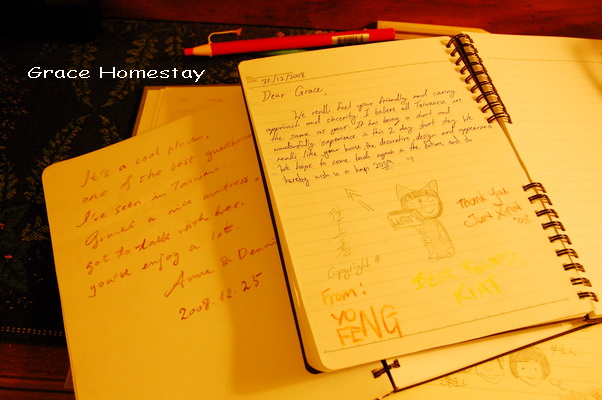 Grace Homestay
27/12/2008
Dear Grace,
We really feel your friendly and caring
approach and sincerity. I believe all Taiwanese are
the same as your. It has being a short and
wonderfully experience in this 2 day short stay. We
really like your house, the decorative, design and appearance.
We hope to come back again in the future and do
hereby wish u a happy 2009
Thank You
Jun Xian
'08
Copyright
From:
YO
FENG
KIAT
It's a cool place,
one of the best guesthouse
I've seen in Taiwan.
Grace's a nice mistress,
got to talk with her.
you'll enjoy a lot.
Anne & Dennis
2008.12.25